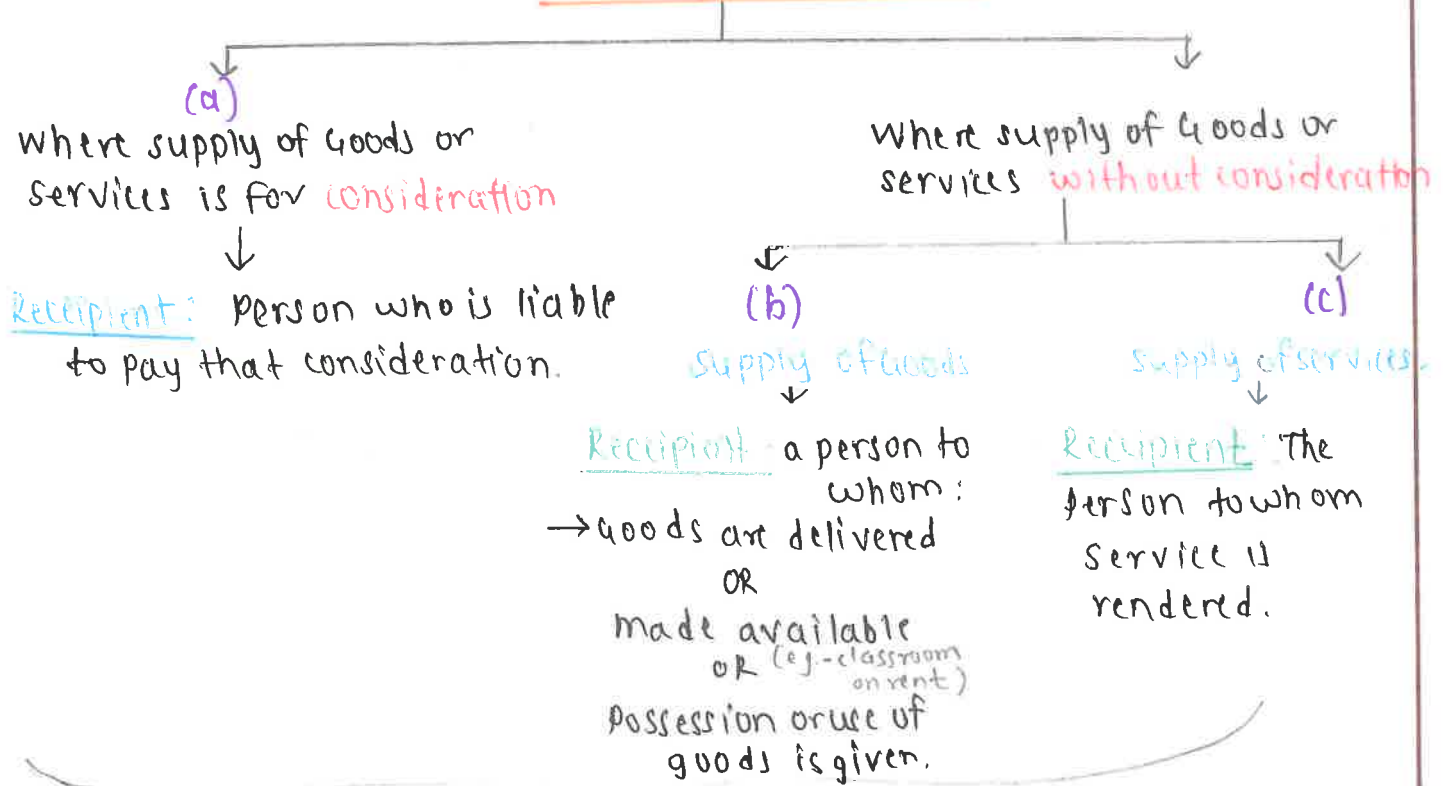 (a)
where supply of Goods or
services is for consideration
Recipient: Person who is liable
to pay that consideration.
Where supply of Goods or
services without consideration
(b)
supply of Goods
Recipient: a person to
whom:
→ Goods are delivered
OR
made available
OR (eg.-classroom
on rent)
Possession or use of
goods is given.
(c)
supply of services.
Recipient: The
person to whom
service is
rendered.